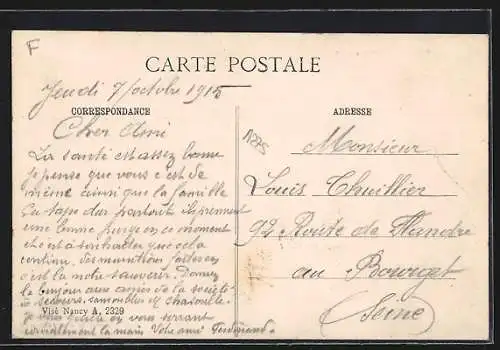 F
CARTE POSTALE
Jeudi 7 octobre 1915
CORRESPONDANCE
ADRESSE
Cher Ami
La santé est assez bonne
je pense que vous c'est de
même ainsi que la famille
Ça tape dur partout ils prennent
une bonne purge en ce moment
c'est à souhaiter que cela
continu, des munitions
c'est la note Donnez
le bonjour aux amies de la société
de secours
je vous quitte en vous serrant
cordialement la main Votre ami Ferdinand
Visé Nancy A, 2329
11275
Monsieur
Louis Thuillier
92 Route de Flandre
au Bourget
(Seine)